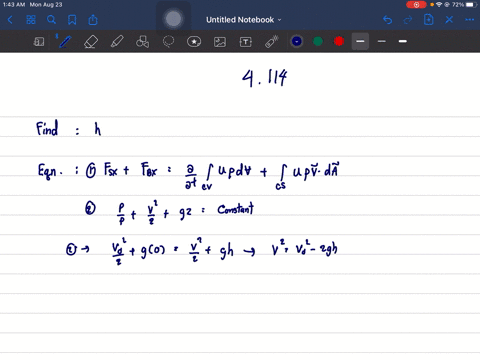 1:43 AM Mon Aug 23
72%
Untitled Notebook
4.114
Find : h
Eqn. : ① F_Sx + F_Bx = ∂/∂t ∫_CV u ρ dV + ∫_CS u ρ V⃗ · dA⃗
② P/ρ + V²/2 + gz = Constant
② → V₀²/2 + g(0) = V²/2 + gh → V² = V₀² - 2gh